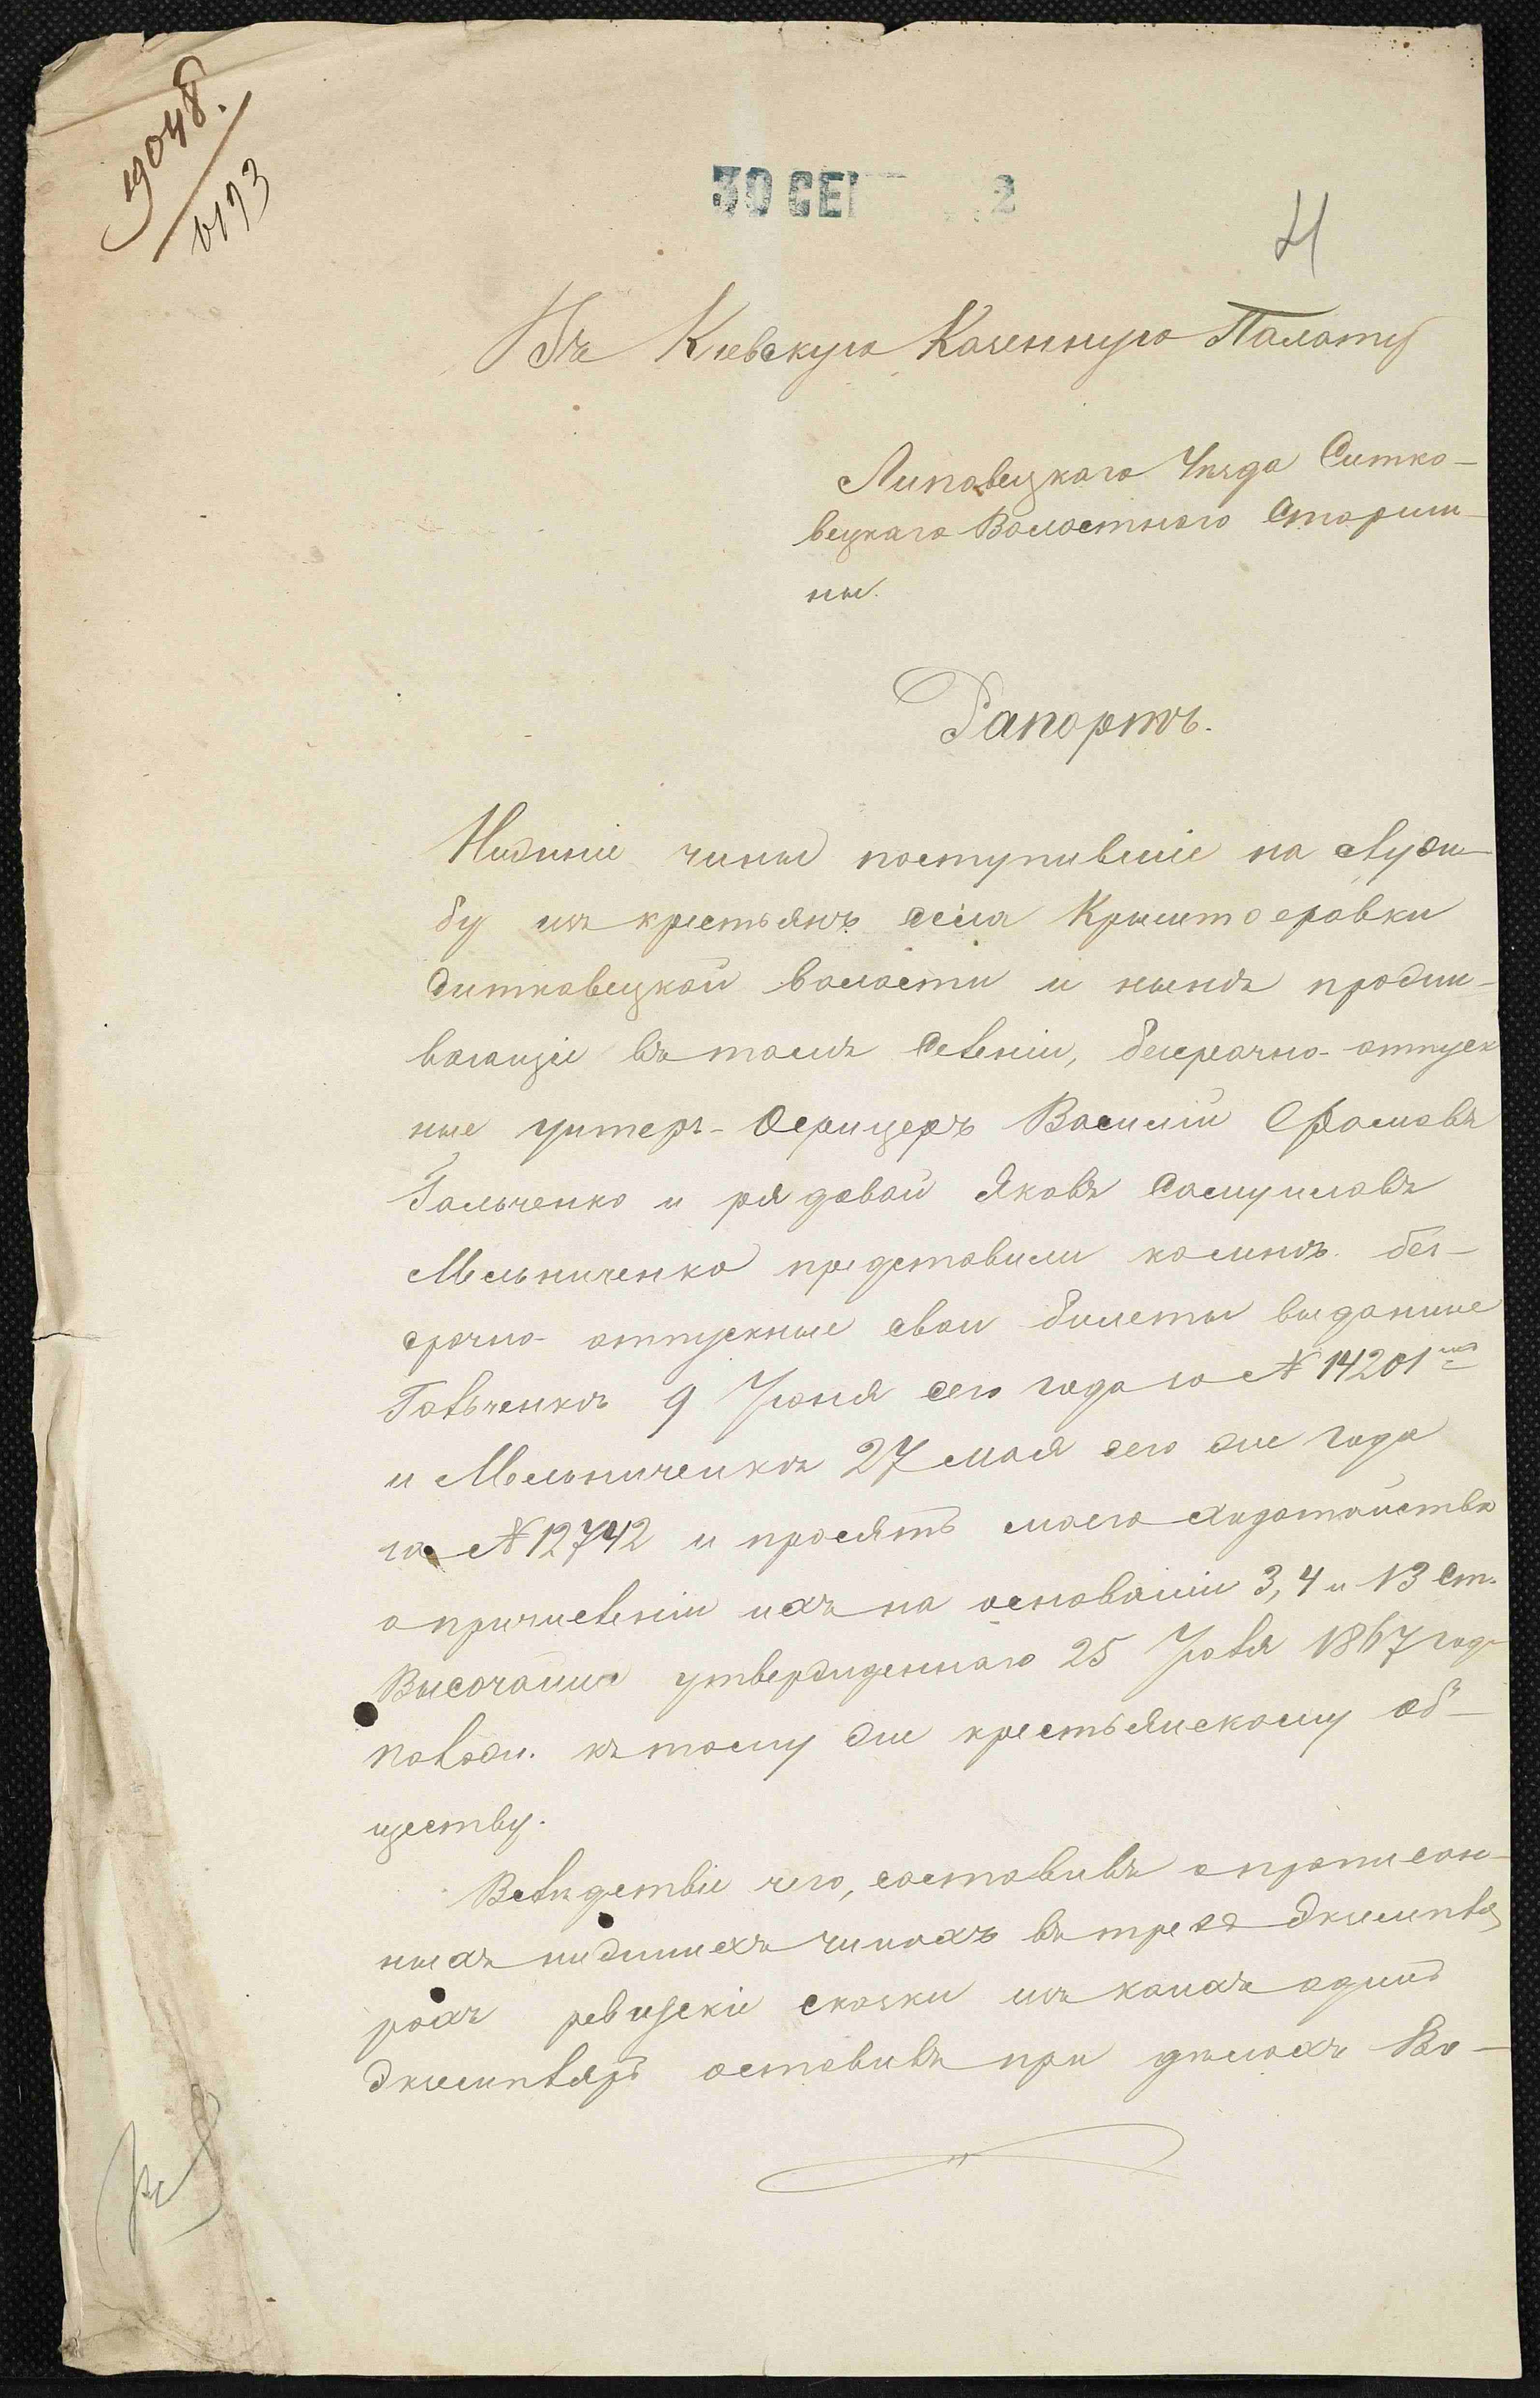 19048.
6193
30 СЕН 2
4
Въ Кіевскую Казенную Палату
Липовецкаго Уѣзда Ситко-
вецкаго Волостнаго Старши-
ны.
Рапортъ.
Нижніе чины поступившіе на служ-
бу изъ крестьянъ села Криштофовки
Ситковецкой волости и нынѣ прожи-
вающіе въ томъ селеніи, безсрочно-отпуск
ные унтеръ-Офицеръ Василій Фомовъ
Гальченко и рядовой Яковъ Самуиловъ
Мельниченко представили комнѣ без-
срочно-отпускные свои билеты выданные
Гальченкѣ 9 Іюня сего года за № 14201
и Мельниченкѣ 27 мая сего же года
за № 12742 и просятъ моего ходотайства
о причисленіи ихъ на основаніи 3, 4 и 13 ст.
Высочайше утвержденнаго 25 Іюля 1867 год.
полож. къ тому же крестьянскому об-
ществу.
Вслѣдствіе чего, составивъ о прописан-
ныхъ нижнихъ чинахъ въ трехъ экземпля
рахъ ревизскіе сказки изъ коихъ одинъ
экземпляръ оставивъ при дѣлахъ Во-